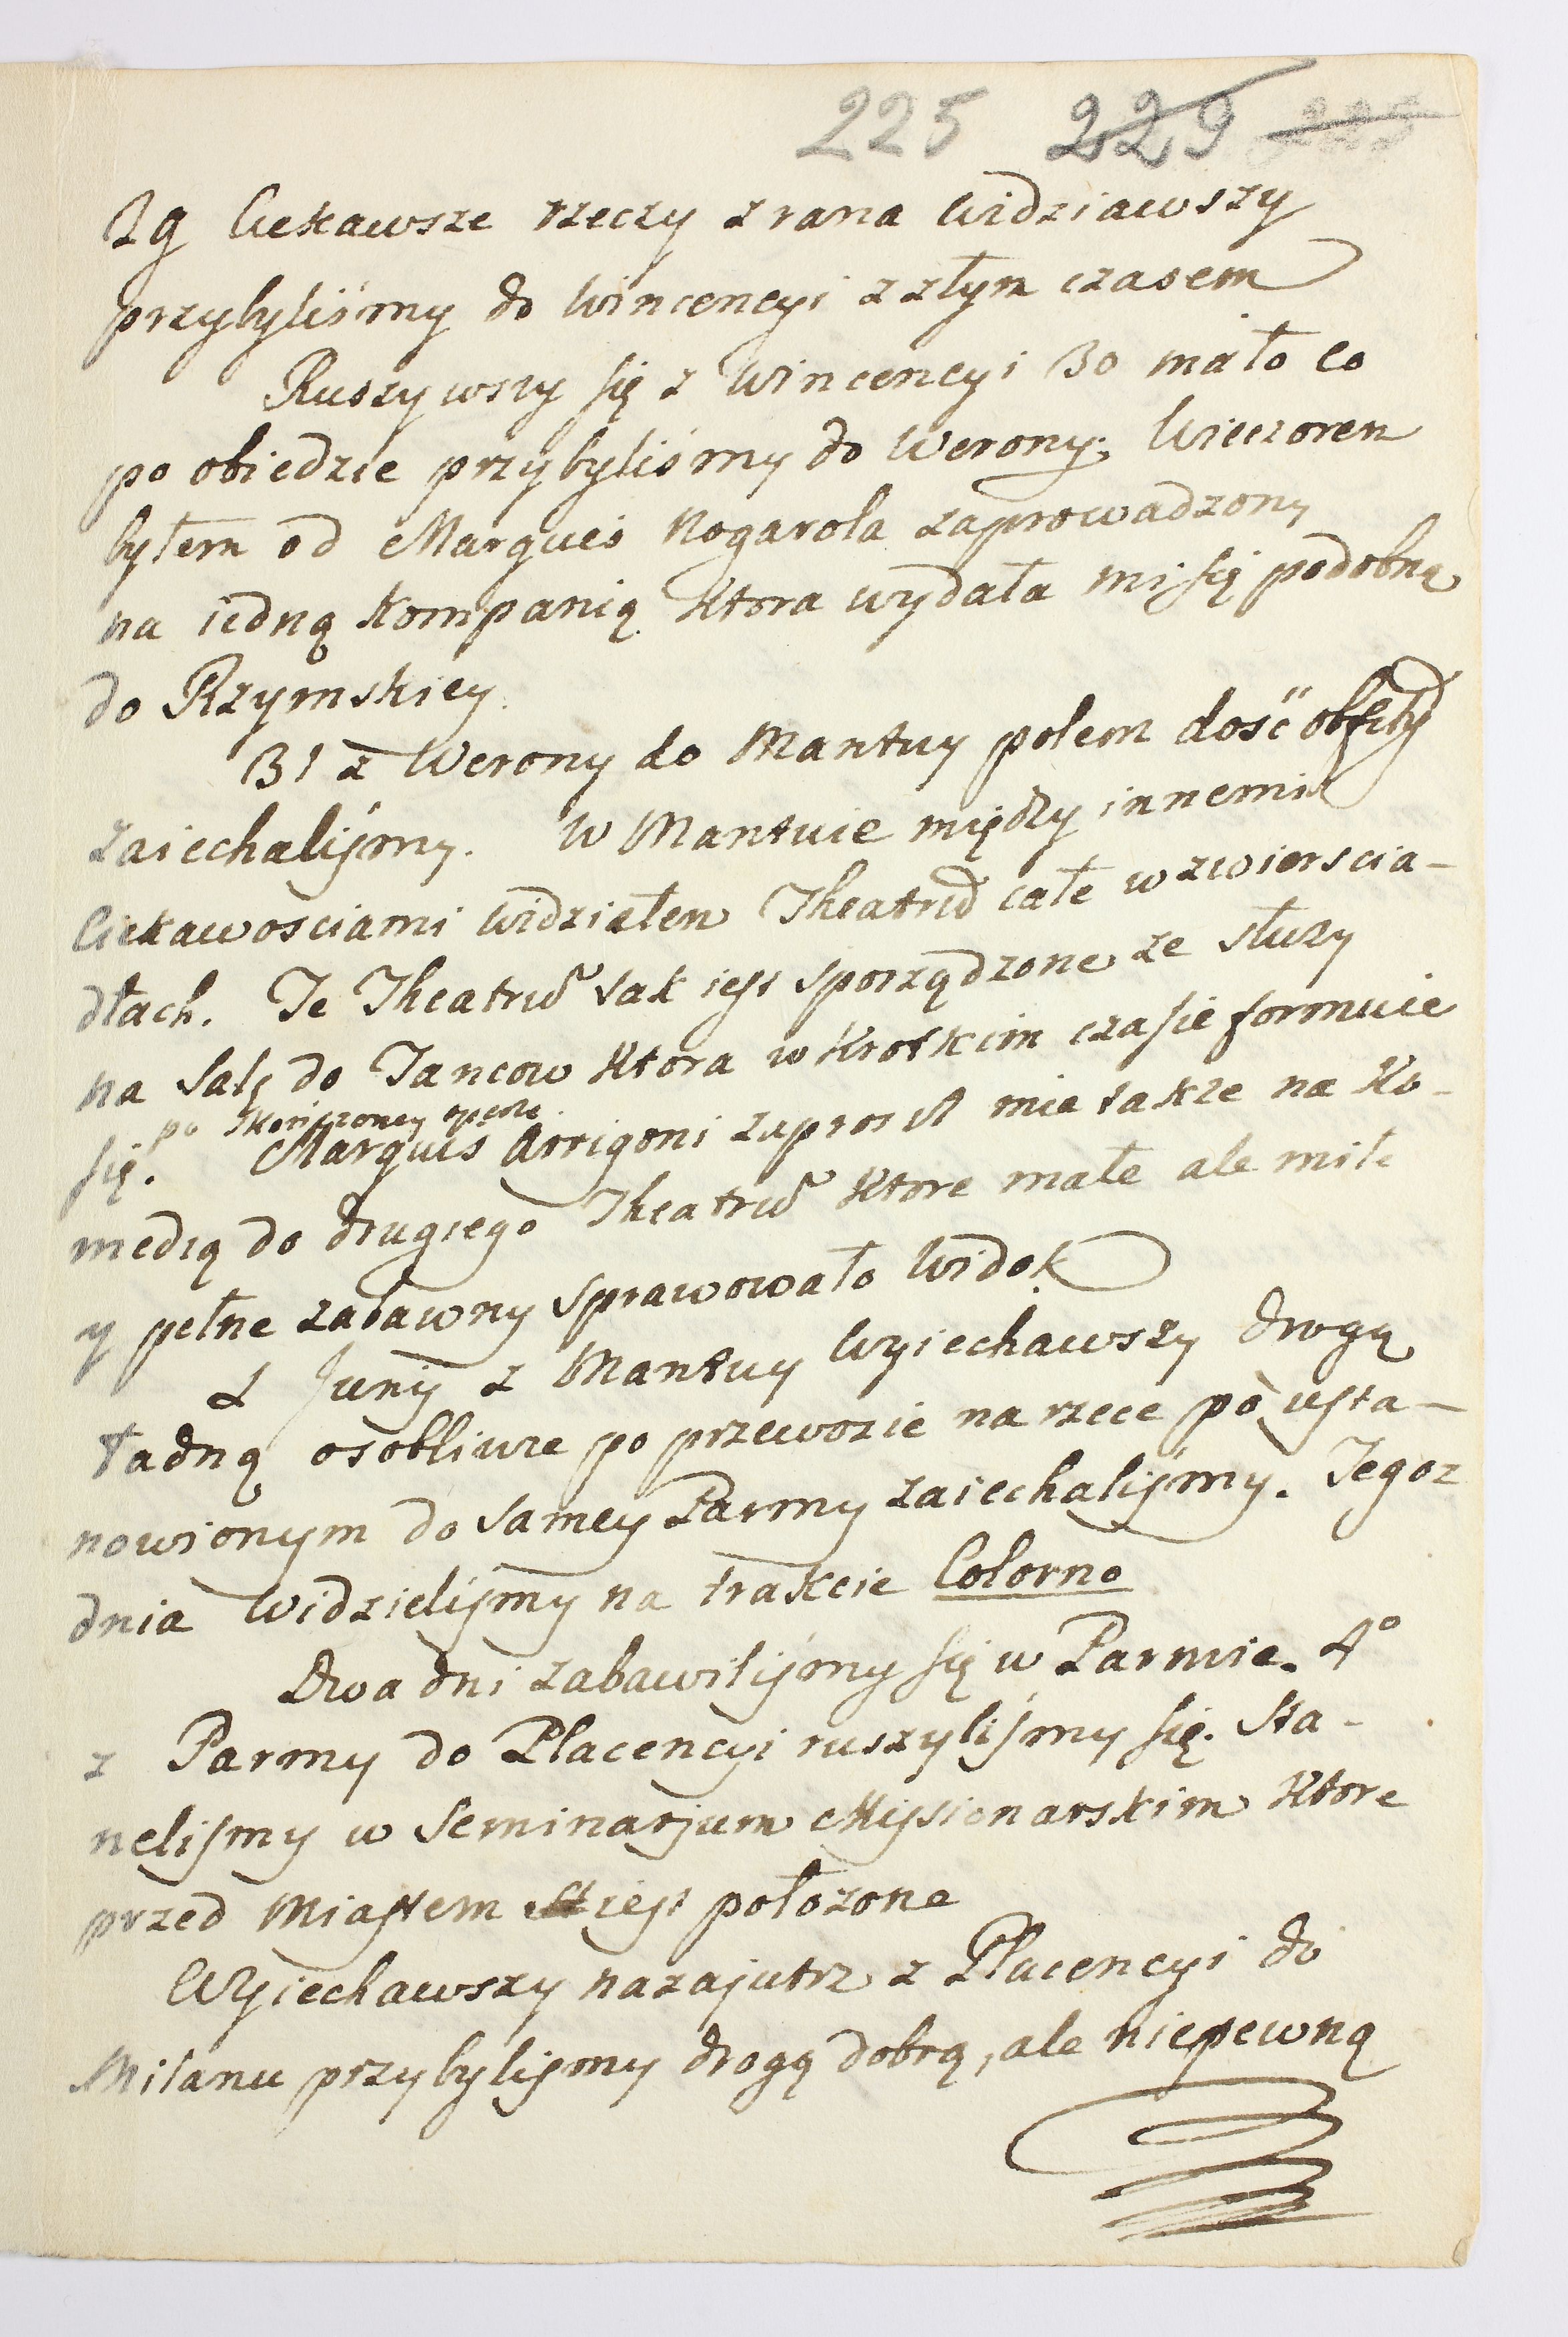 225 229 225
29 Ciekawsze rzeczy z rana widziawszy
przybyliśmy do Wincencyi z złym czasem
Ruszywszy się z Wincencyi 30 mało co
po obiedzie przybyliśmy do Werony. Wieczorem
byłem od Marqueis Nogarola zaprowadzony
na iedną kompanią ktora wydała mi się podobną
do Rzymskiey.
31 z Werony do Mantuy polem dość obfitÿ
zaiechaliśmy. W Mantuie między innemi
Ciekawosciami widziałem Theatrū całe w zwierscia-
dłach. Te Theatrū tak iest sporządzone ze służy
na salę do Tancow ktora w krotkim czasie formuie
po skończoney operze
się. Marquis Arrigoni zaprosił mie także na Ko-
medią do drugiego Theatrū ktore małe ale miłe
y pełne zabawny sprawowało widok
1 Junÿ z Mantuy wyiechawszy drogą
ładną osobliwie po przewozie na rzece pò usta-
nowionym do samey Parmy zaiechaliśmy. Tegoz
dnia widzieliśmy na trakcie Colorno
Dwa dni zabawiliśmy się w Parmie. 4°
z Parmy do Placencyi ruszyliśmy się. Sta-
neliśmy w Seminarjum Missionarskim ktore
przed Miastem iest położone
Wyiechawszy nazajutrz z Placencyi do
Milanu przybyliśmy drogą dobrą, ale niepewną